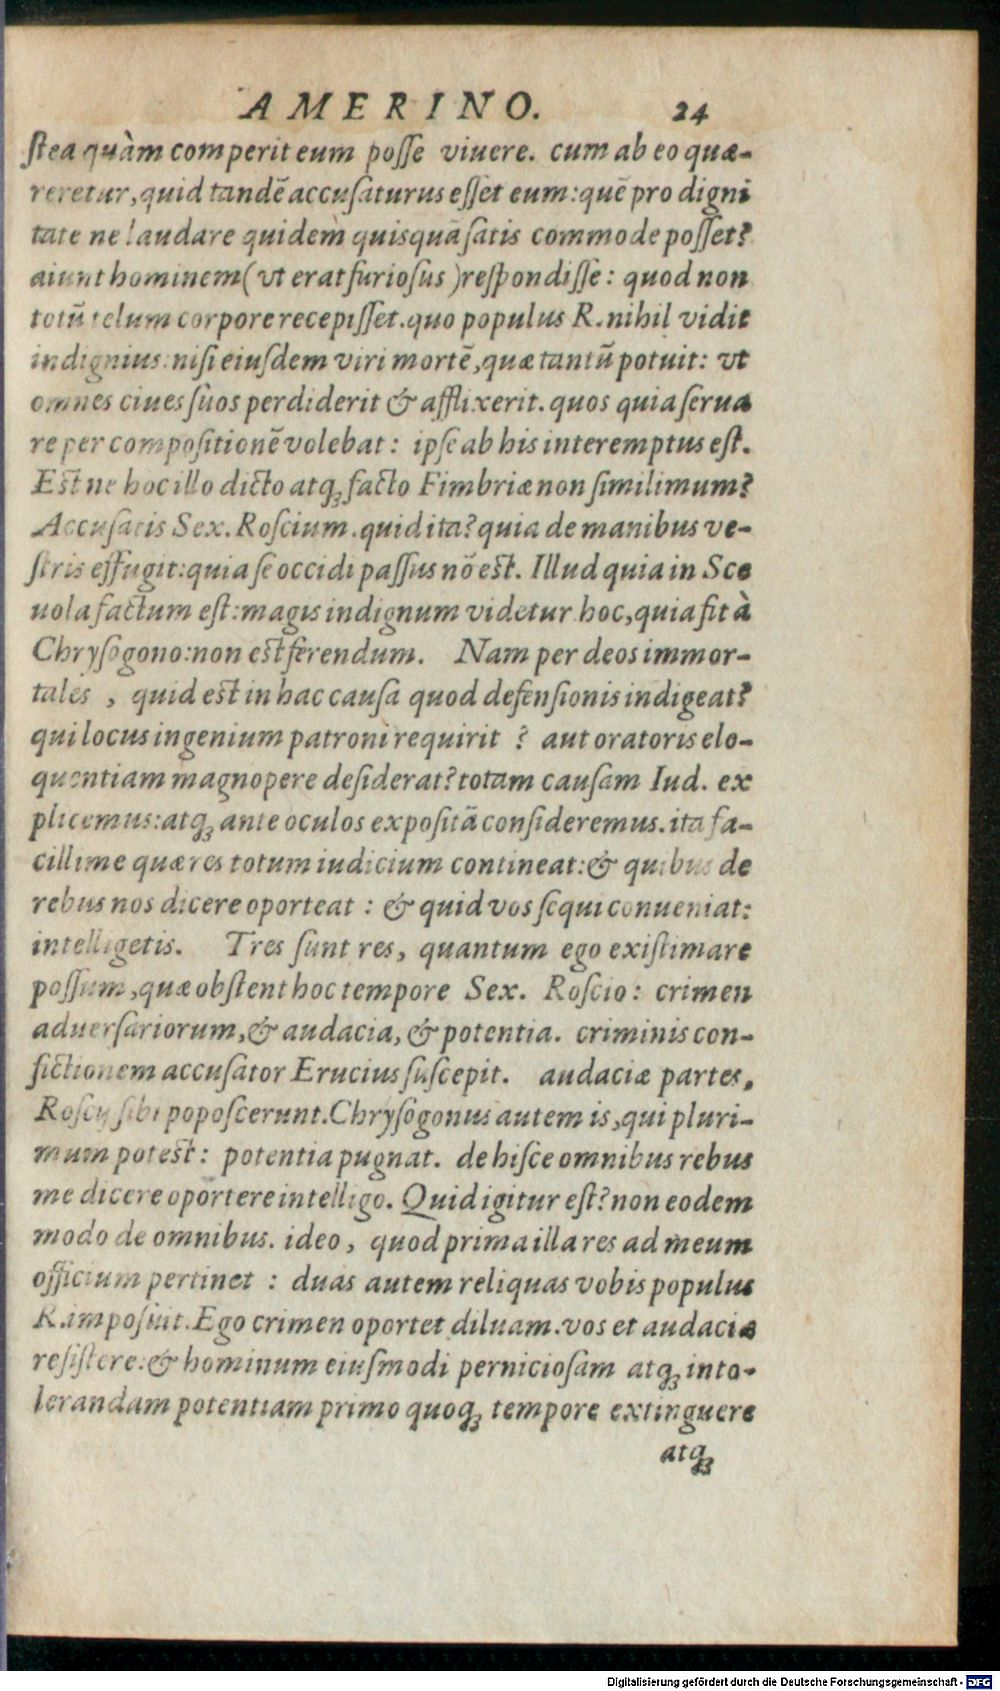 AMERINO. 24
ſtea quàm comperit eum poſſe viuere. cum ab eo quæ-
reretur, quid tandē accuſaturus eſſet eum: quē pro digni
tate ne laudare quidem quisquā ſatis commode poſſet?
aiunt hominem (vt erat furioſus) reſpondiſſe: quod non
totū telum corpore recepiſſet. quo populus R. nihil vidit
indignius: niſi eiuſdem viri mortē, quæ tantū potuit: vt
omnes ciues ſuos perdiderit & afflixerit. quos quia ſerua
re per compoſitionē volebat: ipſe ab his interemptus eſt.
Eſt ne hoc illo dicto atq; facto Fimbriæ non ſimilimum?
Accuſatis Sex. Roſcium. quid ita? quia de manibus ve-
ſtris effugit: quia ſe occidi paſſus nō eſt. Illud quia in Sce
uola factum eſt: magis indignum videtur hoc, quia fit à
Chryſogono: non eſt ferendum. Nam per deos immor-
tales, quid eſt in hac cauſa quod defenſionis indigeat?
qui locus ingenium patroni requirit? aut oratoris elo-
quentiam magnopere deſiderat? totam cauſam Iud. ex
plicemus: atq; ante oculos expoſitā conſideremus. ita fa-
cillime quæ res totum iudicium contineat: & quibus de
rebus nos dicere oporteat: & quid vos ſequi conueniat:
intelligetis. Tres ſunt res, quantum ego exiſtimare
poſſum, quæ obſtent hoc tempore Sex. Roſcio: crimen
aduerſariorum, & audacia, & potentia. criminis con-
fictionem accuſator Erucius ſuſcepit. audaciæ partes,
Roſcij ſibi popoſcerunt. Chryſogonus autem is, qui pluri-
mum poteſt: potentia pugnat. de hiſce omnibus rebus
me dicere oportere intelligo. Quid igitur eſt? non eodem
modo de omnibus. ideo, quod prima illa res ad meum
officium pertinet: duas autem reliquas vobis populus
R. impoſuit. Ego crimen oportet diluam. vos et audaciæ
reſiſtere: & hominum eiuſmodi pernicioſam atq; into-
lerandam potentiam primo quoq; tempore extinguere
atq;
Digitalisierung gefördert durch die Deutsche Forschungsgemeinschaft - DFG